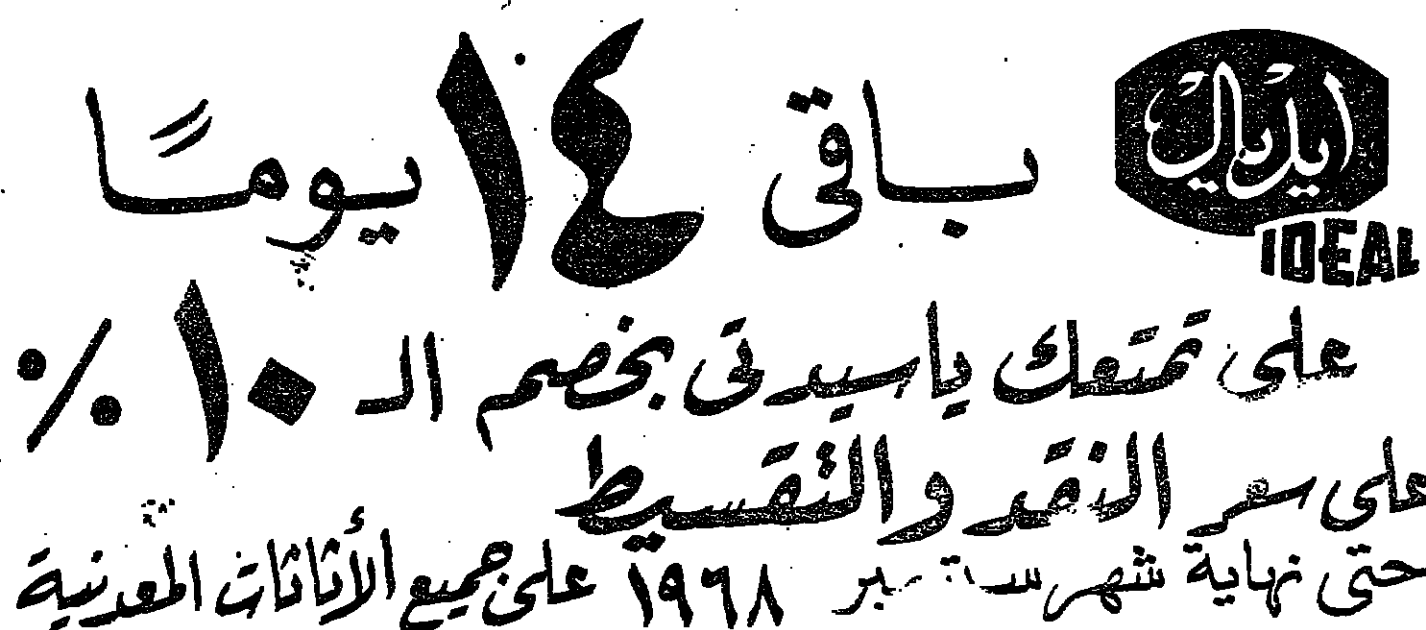 ايديال
IDEAL
باقى ١٤ يومًا
على تمتعك ياسيدتى بخصم الـ ١٠ ٪
على سعر النقد والتقسيط
حتى نهاية شهر ١٩٦٨ على جميع الأثاثات المعدنية